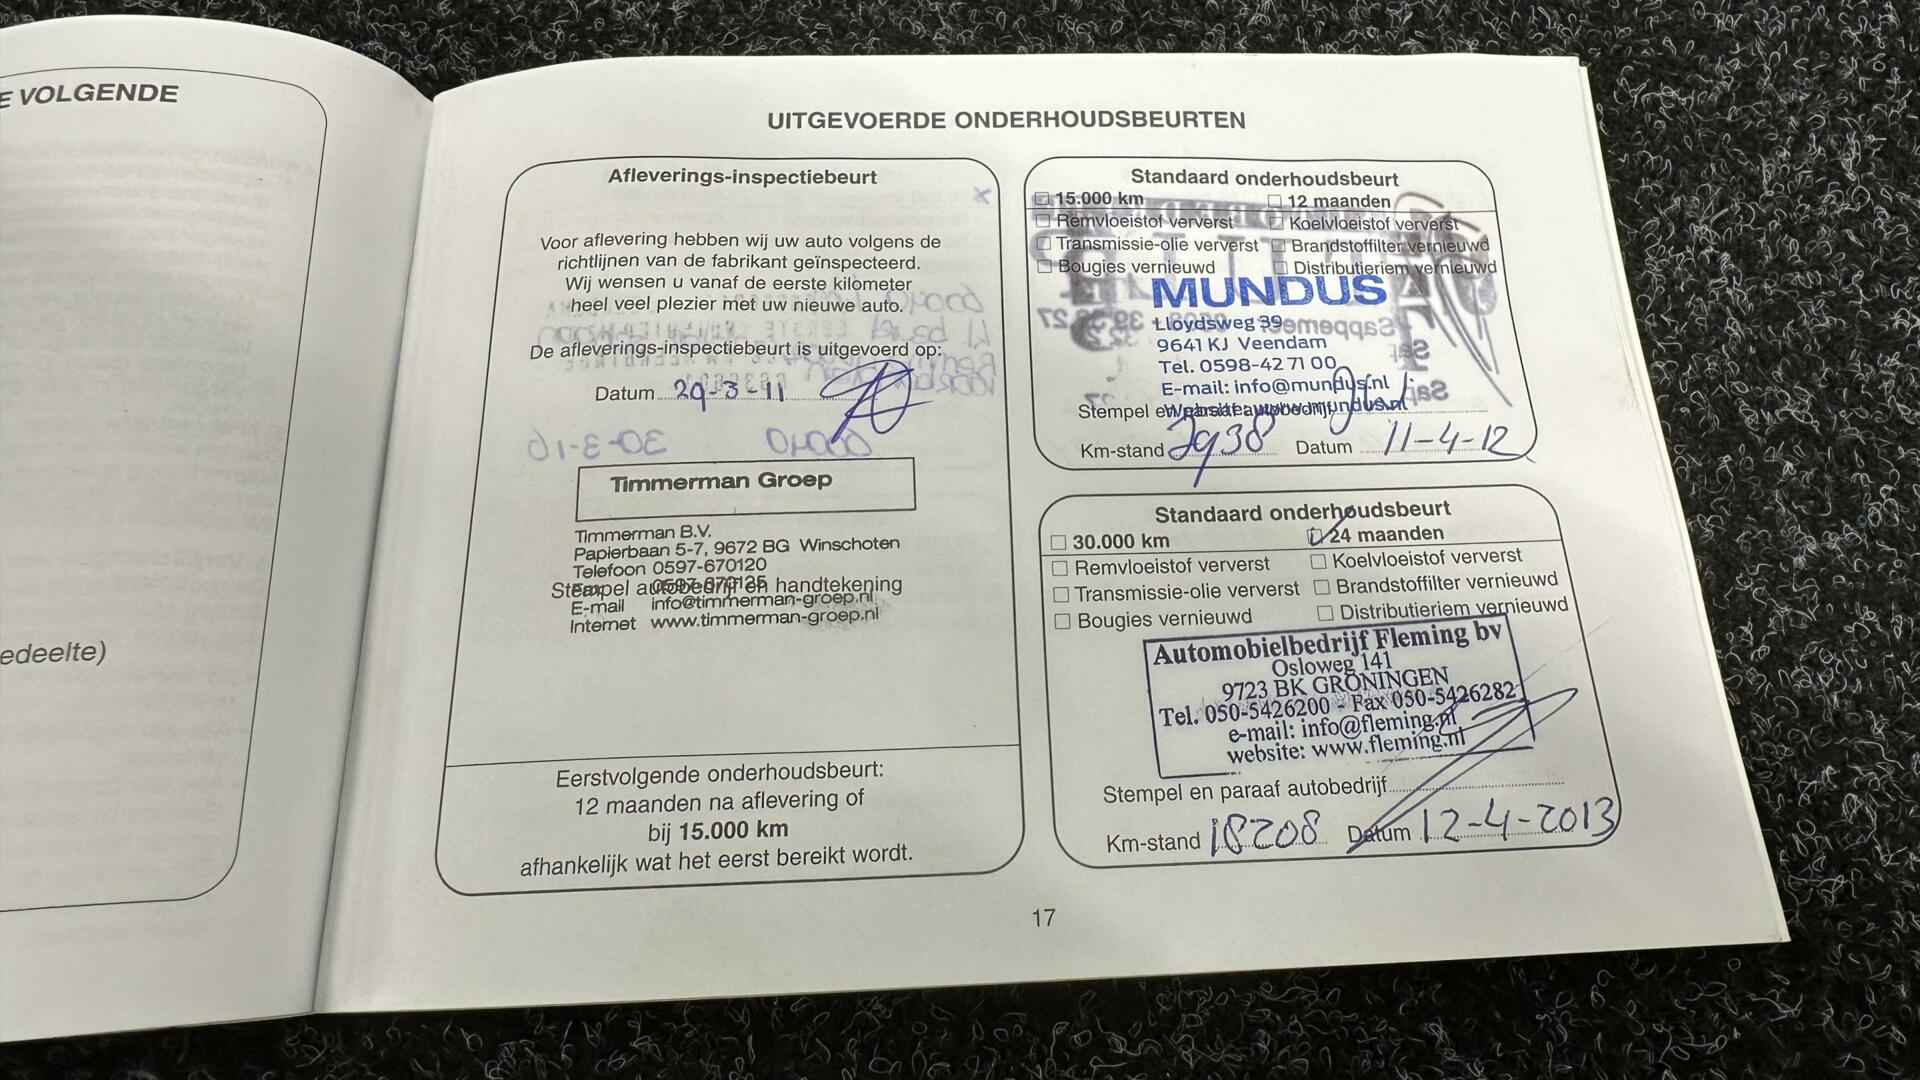 E VOLGENDE
edeelte)
UITGEVOERDE ONDERHOUDSBEURTEN
Afleverings-inspectiebeurt
Voor aflevering hebben wij uw auto volgens de
richtlijnen van de fabrikant geïnspecteerd.
Wij wensen u vanaf de eerste kilometer
heel veel plezier met uw nieuwe auto.
De afleverings-inspectiebeurt is uitgevoerd op:
Datum 29-3-11
Timmerman Groep
Timmerman B.V.
Papierbaan 5-7, 9672 BG Winschoten
Telefoon 0597-670120
Fax 0597-670125
Stempel autobedrijf en handtekening
E-mail info@timmerman-groep.nl
Internet www.timmerman-groep.nl
Eerstvolgende onderhoudsbeurt:
12 maanden na aflevering of
bij 15.000 km
afhankelijk wat het eerst bereikt wordt.
Standaard onderhoudsbeurt
15.000 km 12 maanden
Remvloeistof ververst Koelvloeistof ververst
Transmissie-olie ververst Brandstoffilter vernieuwd
Bougies vernieuwd Distributieriem vernieuwd
MUNDUS
Lloydsweg 39
9641 KJ Veendam
Tel. 0598-42 71 00
E-mail: info@mundus.nl
Website: www.mundus.nl
Stempel en paraaf autobedrijf
Km-stand 2938 Datum 11-4-12
Standaard onderhoudsbeurt
30.000 km 24 maanden
Remvloeistof ververst Koelvloeistof ververst
Transmissie-olie ververst Brandstoffilter vernieuwd
Bougies vernieuwd Distributieriem vernieuwd
Automobielbedrijf Fleming bv
Osloweg 141
9723 BK GRONINGEN
Tel. 050-5426200 - Fax 050-5426282
e-mail: info@fleming.nl
website: www.fleming.nl
Stempel en paraaf autobedrijf
Km-stand 18208 Datum 12-4-2013
17